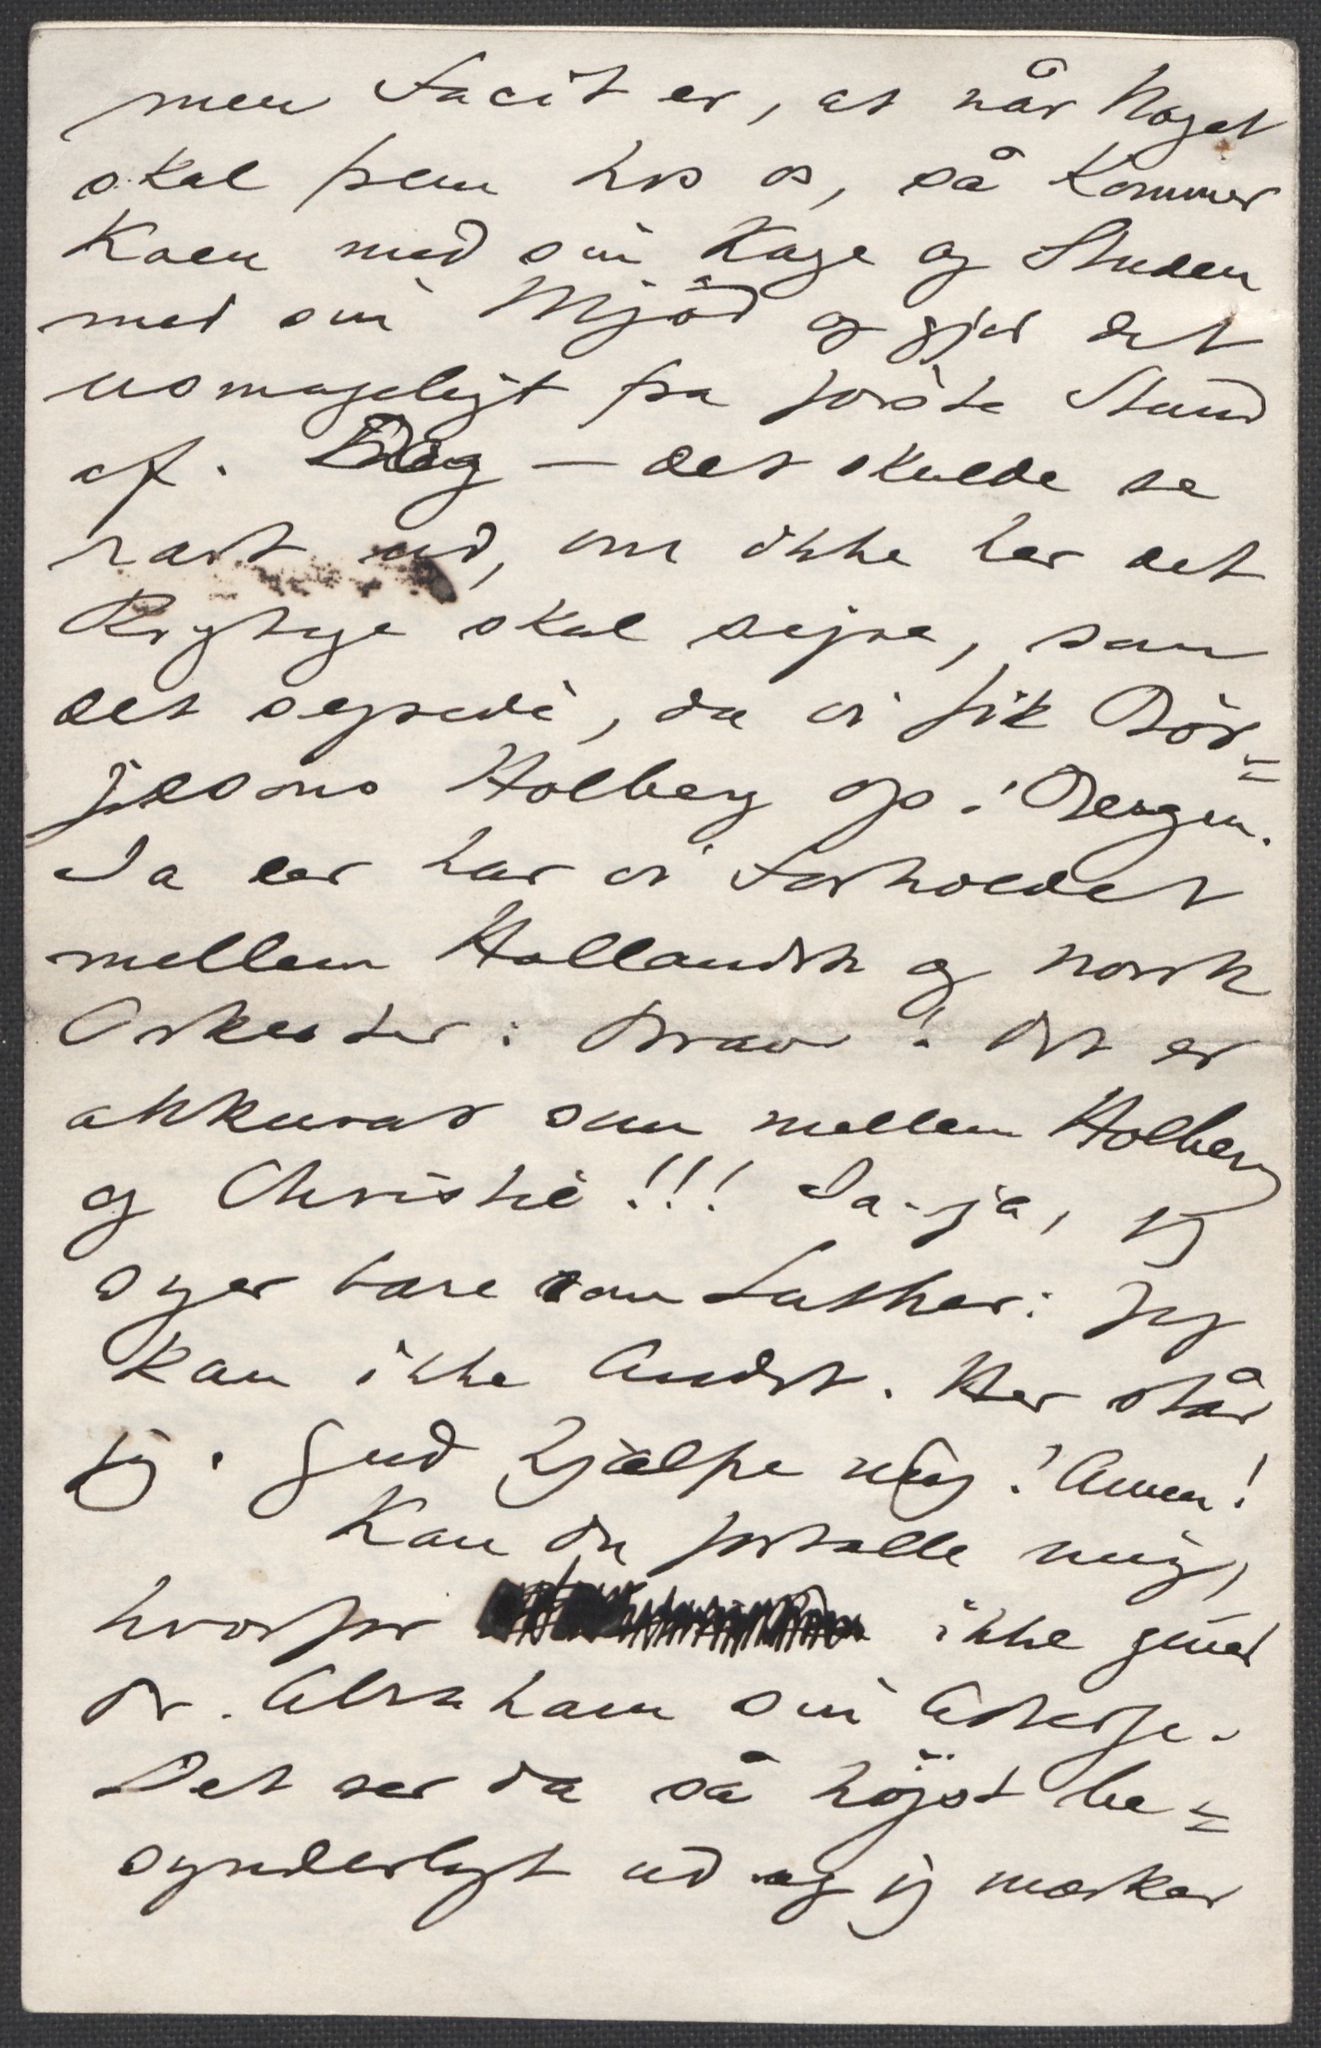 men Facit er, at når Noget
skal frem hos os, så kommer
Koen med sin Kage og Studen
med sin Mjöd og gjør det
usmageligt fra første Stund
af. Dog — det skulde se
rart ud, om ikke her det
Rigtige skal sejre, som
det sejrede, da vi fik Bör-
jesons Holberg op i Bergen.
Ja der har vi Forholdet
mellem Hollandsk og norsk
Orkester: Bravo! Det er
akkurat som mellem Holberg
og Christie!!! Ja-ja, jeg
siger bare som Luther: Jeg
kan ikke Andet. Her står
jeg. Gud hjælpe mig! Amen!
Kan du fortælle mig,
hvorfor ikke giver
Dr. Abraham sin Adresse.
Det ser da så höjst be-
synderligt ud og jeg mærker